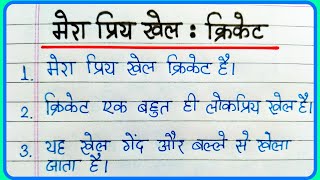 मेरा प्रिय खेल : क्रिकेट
1. मेरा प्रिय खेल क्रिकेट है।
2. क्रिकेट एक बहुत ही लोकप्रिय खेल है।
3. यह खेल गेंद और बल्ले से खेला
जाता है।